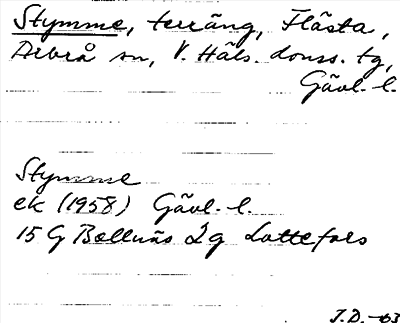 Stymme, terräng, Flästa,
Arbrå sn, V. Häls. doms. tg,
Gävl. l.
Stymme
ek (1958) Gävl. l.
15 G Bollnäs 2g Lottefors
J.D. -63